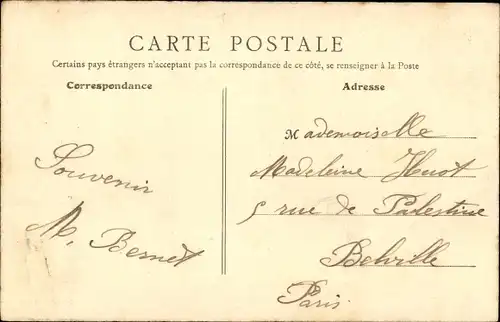 CARTE POSTALE
Certains pays étrangers n'acceptant pas la correspondance de ce côté, se renseigner à la Poste
Correspondance
Adresse
Souvenir
M. Bernet
Mademoiselle
Madeleine Huot
5 rue de Palestine
Belville
Paris